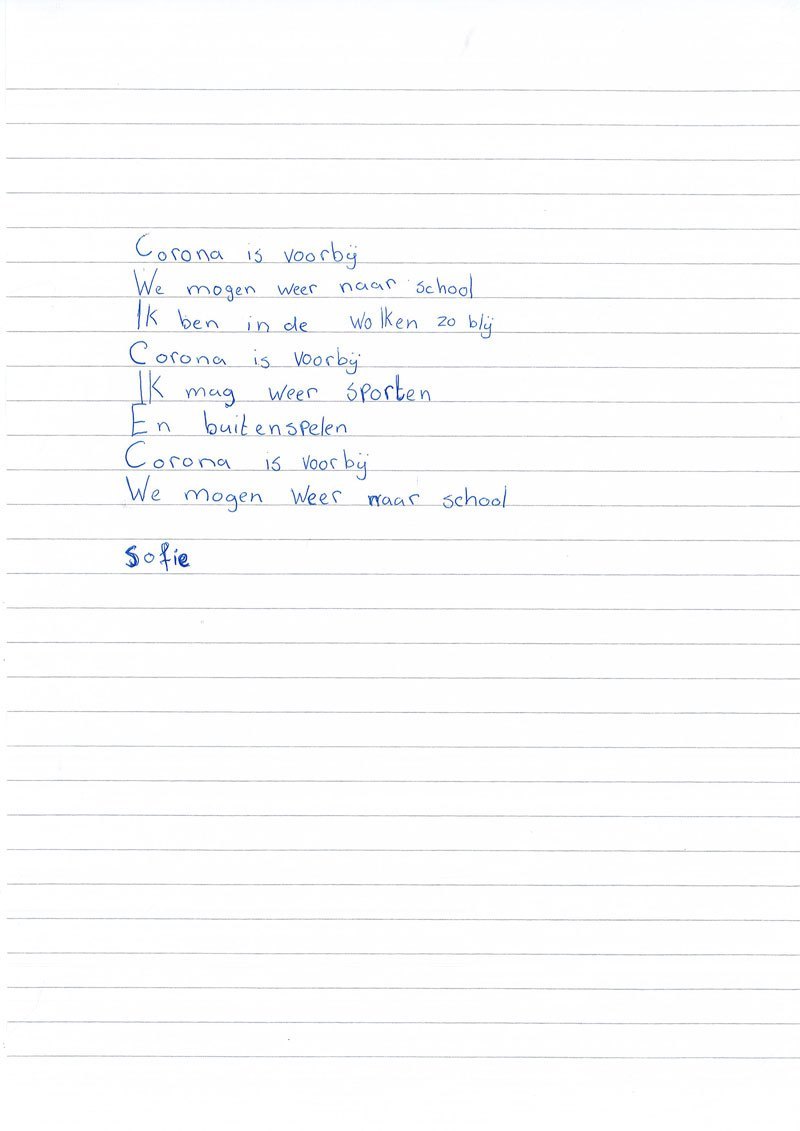 Corona is voorbij
We mogen weer naar school
Ik ben in de wolken zo blij
Corona is voorbij
Ik mag weer sporten
En buitenspelen
Corona is voorbij
We mogen weer naar school
Sofie